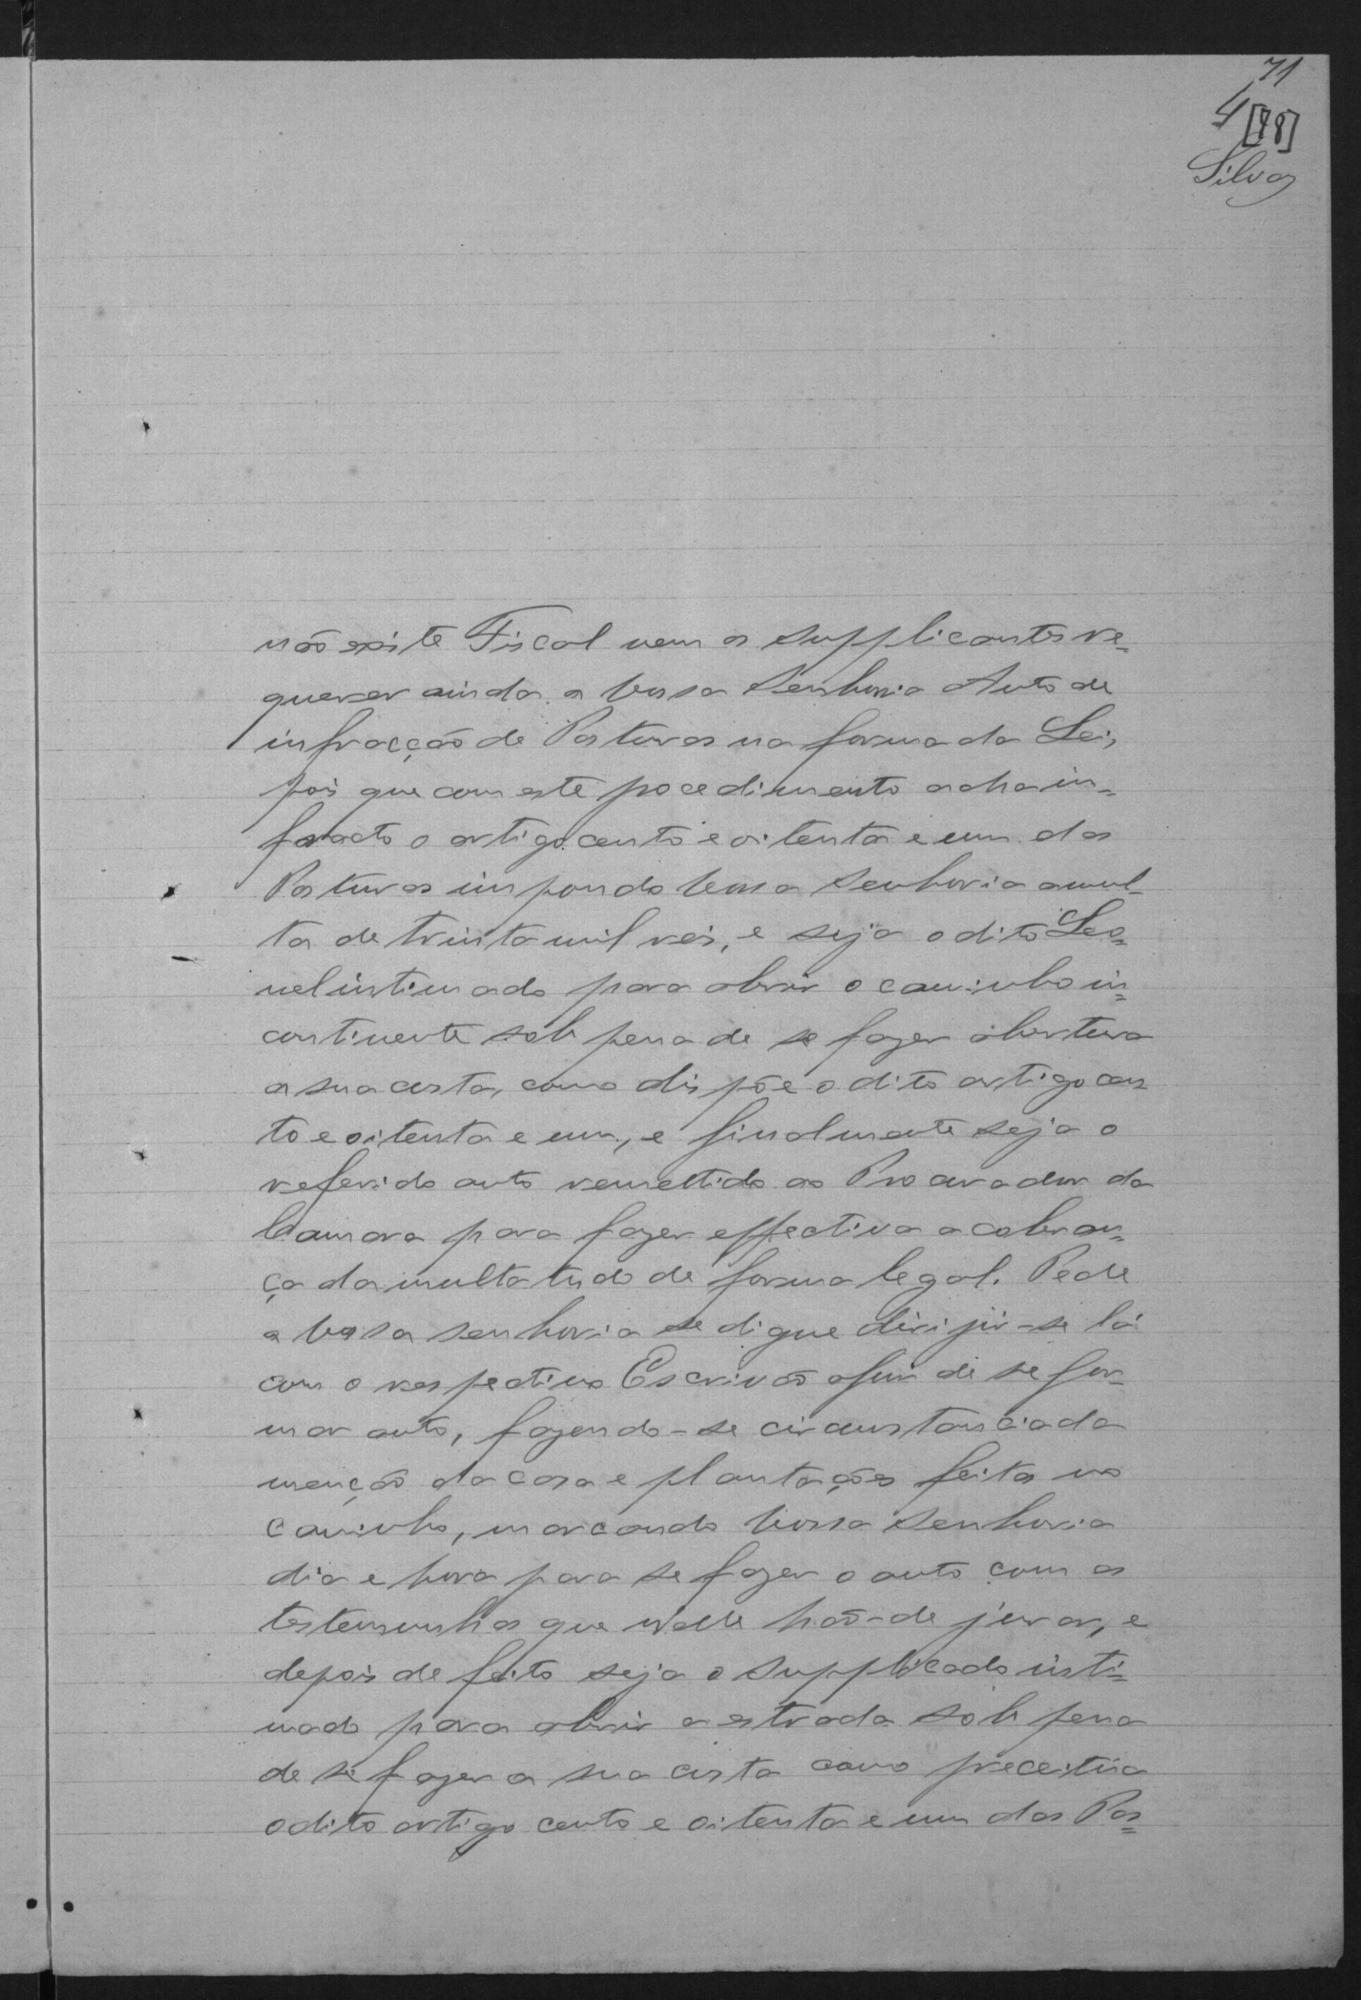 71
4 [78]
Silva
não existe Fiscal vem os supplicantes re=
querer ainda a Vossa Senhoria Auto de
infracção de Posturas na forma da Lei,
pois que com este pocedimento acha in=
fracto o artigo cento e oitenta e um das
Posturas impondo Vossa Senhoria a mul-
ta de trinta mil reis, e seja o dito Leo=
nel intimado para abrir o caminho in=
continente sob pena de se fazer abertura
a sua custa, como dispõe o dito artigo cen
to e oitenta e um, e finalmente seja o
referido auto remettido ao Procurador da
Camara para fazer effectiva a cobran=
ça da multa tudo de forma legal. Pede
a Vossa senhoria se digne dirijir-se lá
com o respectivo Escrivão afim de se for=
mar auto, fazendo-se circunstanciada
menção da casa e plantações feitas no
caminho, marcando Vossa Senhoria
dia e hora para se fazer o auto com as
testemunhas que nelle hão-de jurar, e
depois de feito seja o supplicado inti=
mado para abrir a estrada sob pena
de se fazer a sua custa como preceitua
o dito artigo cento e oitenta e um das Pos=